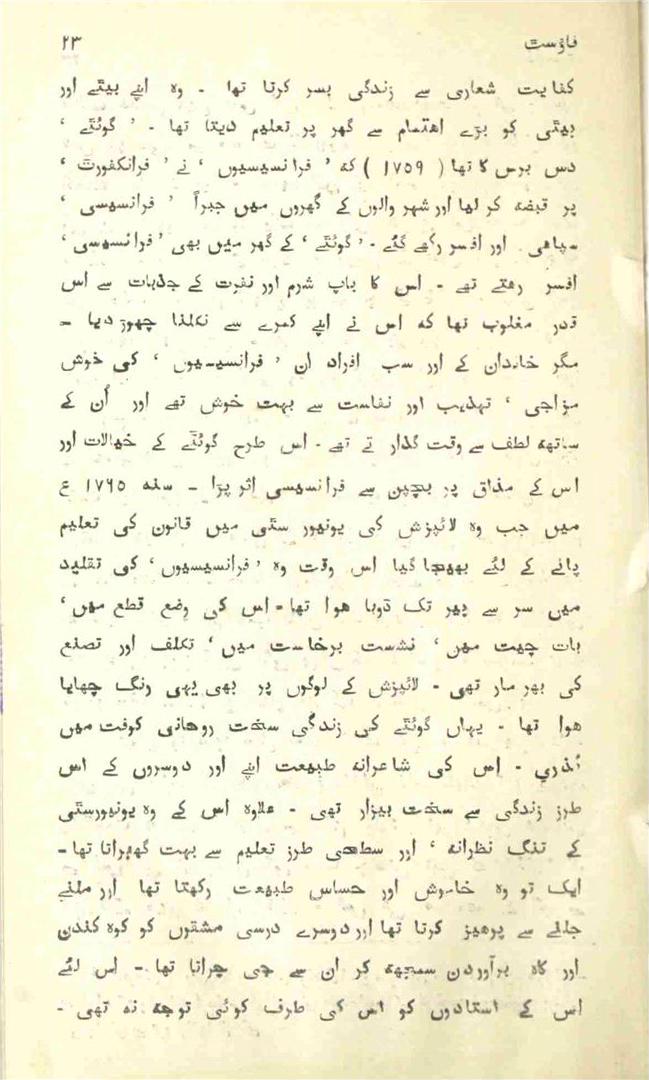 فاؤست ۲۳
کفایت شعاری سے زندگی بسر کرتا تھا - وہ اپنے بیٹے اور
بیٹی کو بڑے اہتمام سے گھر پر تعلیم دیتا تھا - ’ گوئٹے ‘
دس برس کا تھا ( ۱۷۵۹ ) کہ ’ فرانسیسیوں ‘ نے ’ فرانکفورٹ ‘
پر قبضہ کر لیا اور شہر والوں کے گھروں میں جبراً ’ فرانسیسی ‘
سپاہی اور افسر رکھے گئے - ’ گوئٹے ‘ کے گھر میں بھی ’ فرانسیسی ‘
افسر رہتے تھے - اس کا باپ شرم اور نفرت کے جذبات سے اس
قدر مغلوب تھا کہ اس نے اپنے کمرے سے نکلنا چھوڑ دیا -
مگر خاندان کے اور سب افراد ان ’ فرانسیسیوں ‘ کی خوش
مزاجی ‘ تہذیب اور نفاست سے بہت خوش تھے اور اُن کے
ساتھ لطف سے وقت گذار تے تھے - اس طرح گوئٹے کے خیالات اور
اس کے مذاق پر بچپن سے فرانسیسی اثر پڑا - سنہ ۱۷۶۵ ع
میں جب وہ لائپزش کی یونیور سٹی میں قانون کی تعلیم
پانے کے لئے بھیجا گیا اس وقت وہ ’ فرانسیسیوں ‘ کی تقلید
میں سر سے پیر تک ڈوبا ہوا تھا - اس کی وضع قطع میں ‘
بات چیت میں ‘ نشست برخاست میں ‘ تکلف اور تصنع
کی بھر مار تھی - لائپزش کے لوگوں پر بھی یہی رنگ چھایا
ہوا تھا - یہاں گوئٹے کی زندگی سخت روحانی کوفت میں
گذری - اس کی شاعرانہ طبیعت اپنے اور دوسروں کے اس
طرز زندگی سے سخت بیزار تھی - علاوہ اس کے وہ یونیورسٹی
کے تنگ نظرانہ ‘ اور سطحی طرز تعلیم سے بہت گھبراتا تھا -
ایک تو وہ خاموش اور حساس طبیعت رکھتا تھا اور ملنے
جلنے سے پرہیز کرتا تھا اور دوسرے درسی مشقوں کو کوہ کندن
اور کاہ برآوردن سمجھ کر ان سے جی چراتا تھا - اس لئے
اس کے استادوں کو اس کی طرف کوئی توجہ نہ تھی -